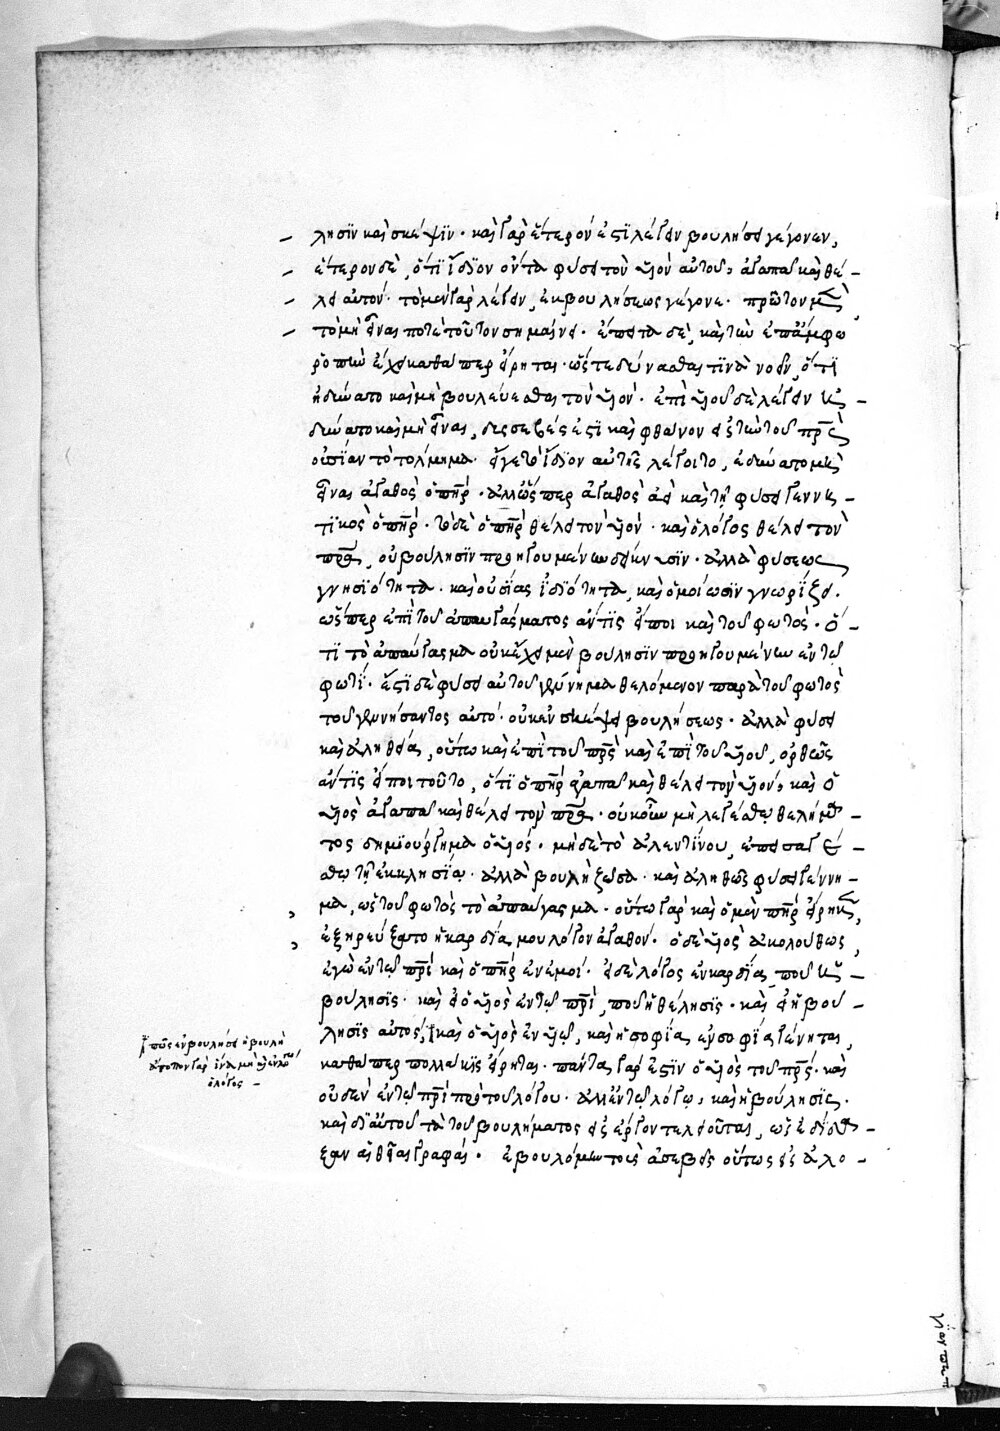 λησιν καὶ σκέψιν· καὶ γὰρ ἕτερόν ἐστι λέγειν βουλήσει γέγονεν,
ἕτερον δὲ, ὅτι ἴδιον ὄντα φύσει τὸν υἱὸν αὐτοῦ, ἀγαπᾶ καὶ θέ-
λει αὐτόν· τὸ μὲν γὰρ λέγειν, ἐκ βουλήσεως γέγονε· πρῶτον μὲν
τὸ μὴ εἶναί ποτε τοῦτον σημαίνει· ἔπειτα δὲ, καὶ τὴν ἐπ' ἄμφω
ῥοπὴν ἔχει καθάπερ εἴρηται· ὥστε δύνασθαί τινα νοεῖν, ὅτι
ἠδύνατο καὶ μὴ βουλεύεσθαι τὸν υἱόν· ἐπὶ υἱοῦ δὲ λέγειν
δύνατο καὶ μὴ εἶναι, δυσσεβές ἐστι καὶ φθάνον εἰς τὴν τοῦ πρς
οὐσίαν τὸ τόλμημα· εἴγε τὸ ἴδιον αὐτῆς λέγοιτο, ἐδύνατο μὴ
εἶναι ἀγαθὸς ὁ πηρ· ἀλλ' ὥσπερ ἀγαθὸς ἀεὶ καὶ τῇ φύσει γεννη-
τικὸς ὁ πηρ· τὸ δὲ ὁ πηρ θέλει τὸν υἱόν· καὶ ὁ λόγος θέλει τὸν
πρα, οὐ βούλησιν προηγουμένην δείκνυσιν· ἀλλὰ φύσεως
γνησιότητα· καὶ οὐσίας ἰδιότητα, καὶ ὁμοίωσιν γνωρίζει·
ὥσπερ ἐπὶ τοῦ ἀπαυγάσματος ἄν τις εἴποι καὶ τοῦ φωτός· ὅ-
τι τὸ ἀπαύγασμα οὐκ ἔχει μὲν βούλησιν προηγουμένην ἐν τῷ
φωτί· ἔστι δὲ φύσει αὐτοῦ γέννημα θελόμενον παρὰ τοῦ φωτὸς
τοῦ γεννήσαντος αὐτό· οὐκ ἐν σκέψει βουλήσεως· ἀλλὰ φύσει
καὶ ἀληθείᾳ, οὕτω καὶ ἐπὶ τοῦ πρς καὶ ἐπὶ τοῦ υἱοῦ, ὀρθῶς
ἄν τις εἴποι τοῦτο, ὅτι ὁ πηρ ἀγαπᾶ καὶ θέλει τὸν υἱόν, καὶ ὁ
υἱὸς ἀγαπᾶ καὶ θέλει τὸν πρα· οὐκοῦν μὴ λεγέσθω θελήμα-
τος δημιούργημα ὁ υἱός· μὴδὲ τὸ ἀλεντίνου, ἐπεισαγέ-
σθω τῇ ἐκκλησίᾳ· ἀλλὰ βουλὴ ζῶσα· καὶ ἀληθῶς φύσει γέννη-
μα, ὡς τοῦ φωτὸς τὸ ἀπαύγασμα· οὕτω γὰρ καὶ ὁ μὲν πηρ εἴρηκεν,
ἐξηρεύξατο ἡ καρδία μου λόγον ἀγαθόν· ὁ δὲ υἱὸς ἀκολούθως,
ἐγὼ ἐν τῷ πρὶ καὶ ὁ πηρ ἐν ἐμοί· εἰ δὲ λόγος ἐν καρδίᾳ, ποῦ
βούλησις· καὶ εἰ ὁ υἱὸς ἐν τῷ πρὶ, ποῦ ἡ θέλησις· καὶ εἰ ἡ βού-
λησις αὐτός, καὶ ὁ υἱὸς ἐν υἱῷ, καὶ ἡ σοφία, ἐν σοφίᾳ γένηται,
καθάπερ πολλάκις εἴρηται· πάντα γάρ ἐστιν ὁ υἱὸς τοῦ πρς· καὶ
οὐδὲν ἐν τῷ πρὶ πρὸ τοῦ λόγου· ἀλλ' ἐν τῷ λόγῳ, καὶ ἡ βούλησις·
καὶ δι' αὐτοῦ τὰ τοῦ βουλήματος εἰς ἔργον τελειοῦται, ὡς ἔδει-
ξαν αἱ θεῖαι γραφαί· ἐβουλόμην τοὺς ἀσεβεῖς οὕτως εἰς ἀλο-
πῶς ἐν βουλήσει ἡ βουλή
ἄτοπον γὰρ ἵνα μὴ ᾖ ἐν λόγῳ
ὁ λόγος -